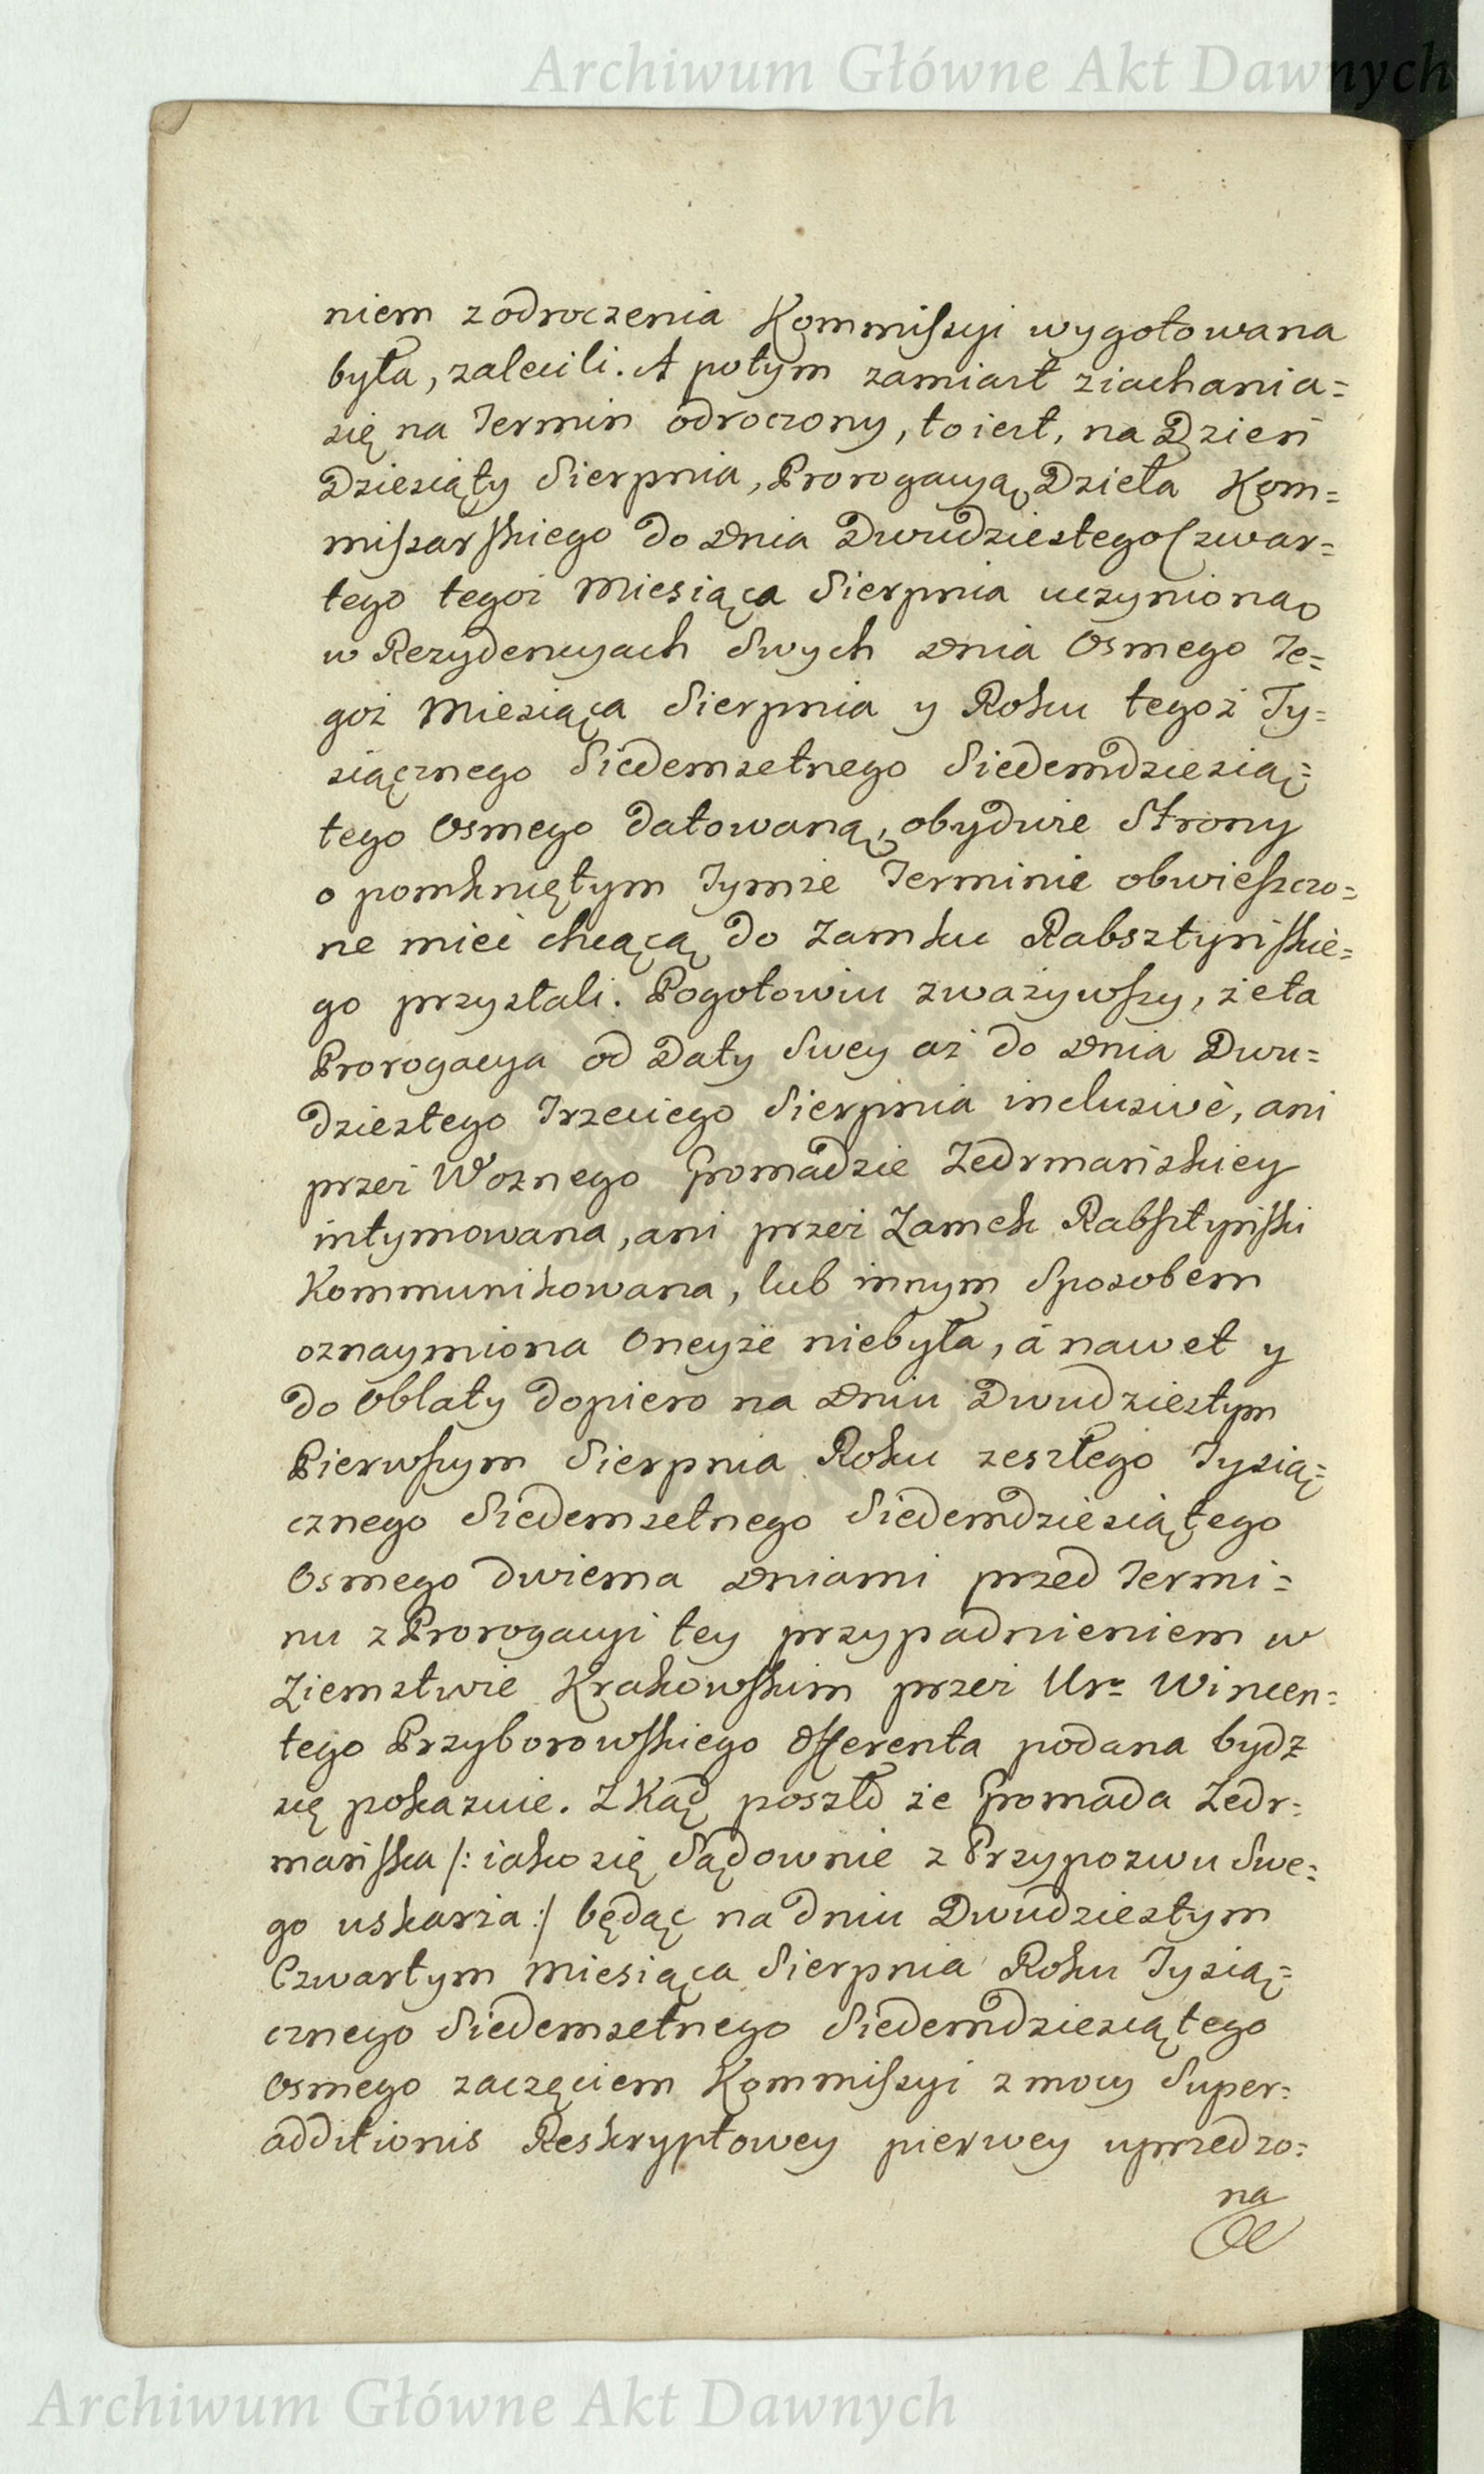 Archiwum Główne Akt Dawnych
niem z odroczenia Kommissyi wygotowana
była, zalecili. A potym zamiast ziachania=
się na Termin odroczony, to iest, na Dzień
Dziesiąty Sierpnia, Prorogacyą Dzieła Kom=
missarskiego do Dnia Dwudziestego Czwar=
tego tegoż Miesiąca Sierpnia uczynioną
w Rezydencyach Swych Dnia Osmego Te=
goż Miesiąca Sierpnia y Roku tegoż Ty=
siącznego Siedemsetnego Siedemdziesią=
tego Osmego datowaną, obydwie Strony
o pomkniętym Tymże Terminie obwieszczo=
ne mieć chcącą do Zamku Rabsztyńskie=
go przysłali. Pogotowiu zważywszy, że ta
Prorogacya od Daty Swey aż do Dnia Dwu=
dziestego Trzeciego Sierpnia inclusivè, ani
przez Woznego Gromadzie Zedrmańskiey
intymowana, ani przez Zamek Rabsztyński
Kommunikowana, lub innym Sposobem
oznaymiona Oneyże niebyła, á nawet y
do Oblaty dopiero na Dniu Dwudziestym
Pierwszym Sierpnia Roku zeszłego Tysią=
cznego Siedemsetnego Siedemdziesiątego
Osmego dwiema Dniami przed Termi=
nu z Prorogacyi tey przypadnieniem w
Ziemstwie Krakowskim przez Ur. Wincen=
tego Przyborowskiego Offerenta podana bydz
się pokazuie. Z Kąd poszło że Gromada Zedr=
mańska /: iako się Sądownie z Przypozwu Swe=
go uskarża :/ będąc na dniu Dwudziestym
Czwartym Miesiąca Sierpnia Roku Tysią=
cznego Siedemsetnego Siedemdziesiątego
Osmego zaczęciem Kommissyi z mocy Super=
additionis Reskryptowey pierwey uprzedzo=
na
Archiwum Główne Akt Dawnych